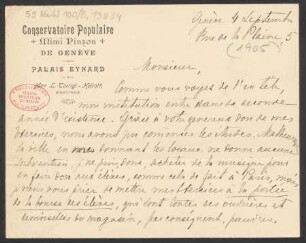 Genève 4 Septembre
Rue de la Plaine 5
(1905)
Conservatoire Populaire
Mimi Pinson
DE GENÈVE
PALAIS EYNARD
Monsieur,
Comme vous voyez de l'en tête,
mon institution entre dans sa seconde
année d'existence. Grâce à votre don de mes
œuvres, nous avons pu commencer les études.
la ville en nous donnant les locaux ne donne aucune
subvention, je ne puis donc, acheter de la musique pour
en faire don aux élèves, comme cela se fait à Paris, mais
je viens vous prier de mettre à la portée
de la bourse des élèves, qui sont toutes des ouvrières et
demoiselles de magasin, par conséquent, pauvres,